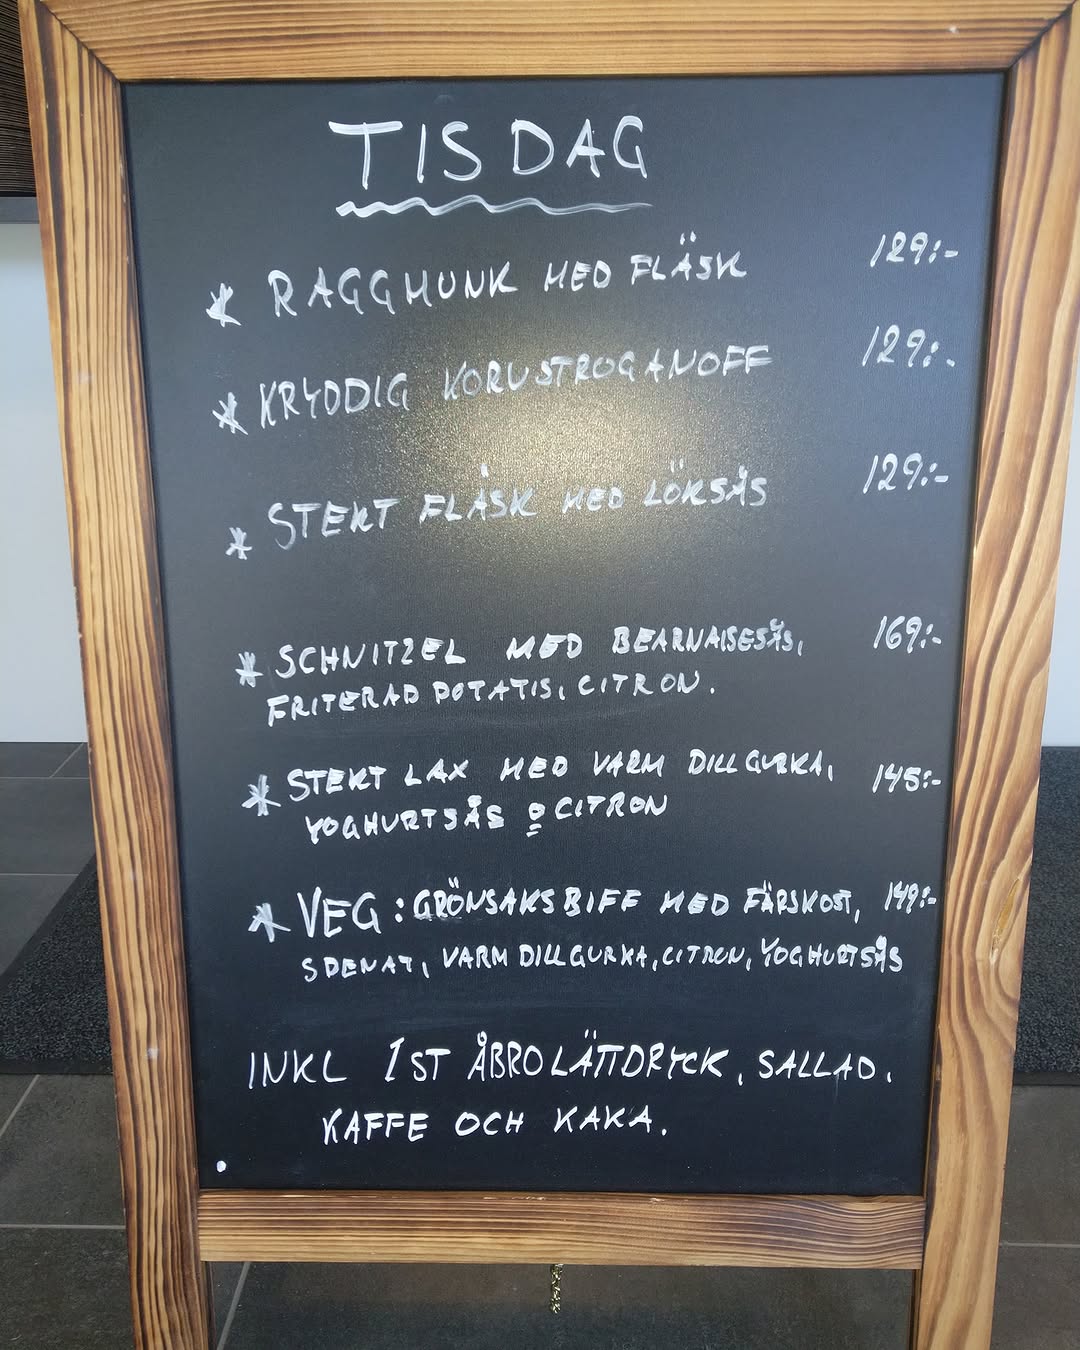 TISDAG
* RAGGMUNK MED FLÄSK 129:-
* KRYDDIG KORVSTROGANOFF 129:-
* STEKT FLÄSK MED LÖKSÅS 129:-
* SCHNITZEL MED BEARNAISESÅS, 169:-
FRITERAD POTATIS, CITRON.
* STEKT LAX MED VARM DILLGURKA, 145:-
YOGHURTSÅS o CITRON
* VEG: GRÖNSAKSBIFF MED FÄRSKOST, 149:-
SPENAT, VARM DILLGURKA, CITRON, YOGHURTSÅS
INKL 1ST ÅBRO LÄTTDRYCK, SALLAD,
KAFFE OCH KAKA.